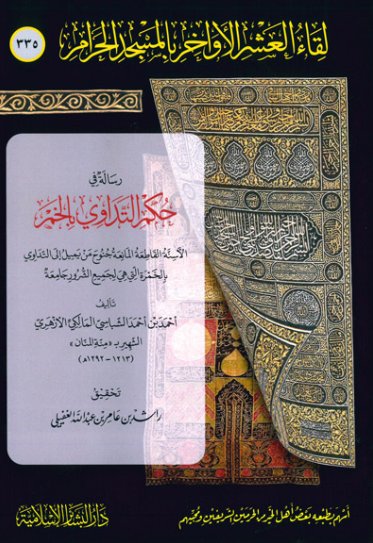 لقاء العشر الأواخر بالمسجد الحرام
٣٣٥
رسالة في
حكم التداوي بالخمر
الأسنة القاطعة المانعة جنوح من يميل إلى التداوي
بالخمرة التي هي لجميع الشرور جامعة
تأليف
أحمد بن أحمد الشباسي المالكي الأزهري
الشهير بـ «منة المنان»
(١٢١٣ - ١٢٩٢هـ)
تحقيق
راشد بن عامر بن عبد الله الغفيلي
أسهم بطبعه بعض أهل الخير من الحرمين الشريفين ومحبيهم
دار البشائر الإسلامية